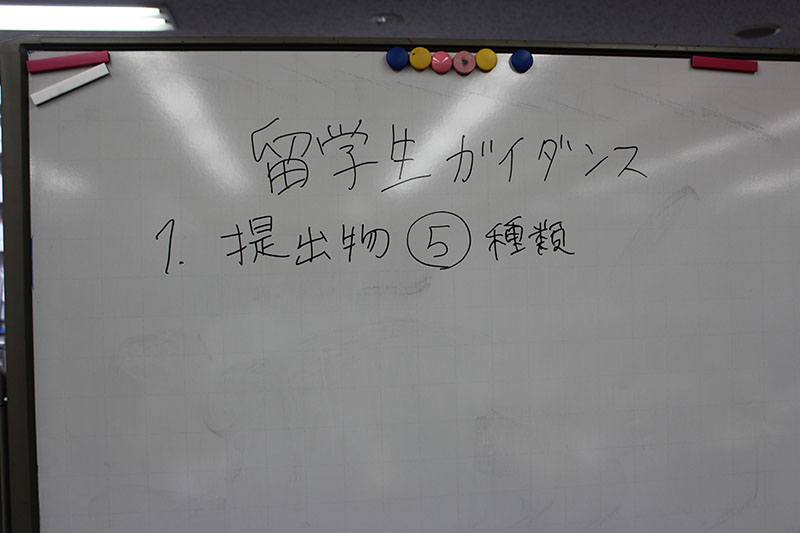 留学生ガイダンス
1. 提出物 ⑤ 種類